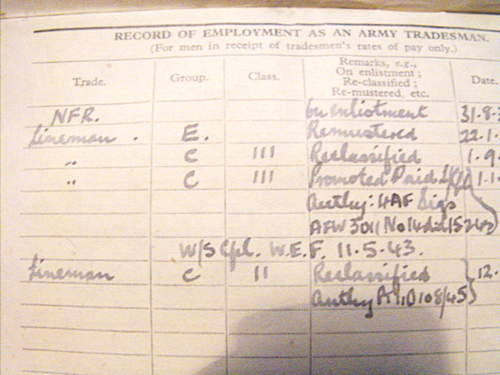 RECORD OF EMPLOYMENT AS AN ARMY TRADESMAN.
(For men in receipt of tradesmen's rates of pay only.)
Trade. Group. Class. Remarks, e.g., Date.
On enlistment;
Re-classified;
Re-mustered, etc.
NFR. On enlistment 31.8.
Lineman . E. Remustered 22.1.
" C III Reclassified 1.9.
" C III Promoted Paid 1.1.
Authy: 4AF Sigs
AFW 3011 No 14
W/S Cpl. W.E.F. 11.5.43.
Lineman C II Reclassified 12.
Authy 108/45